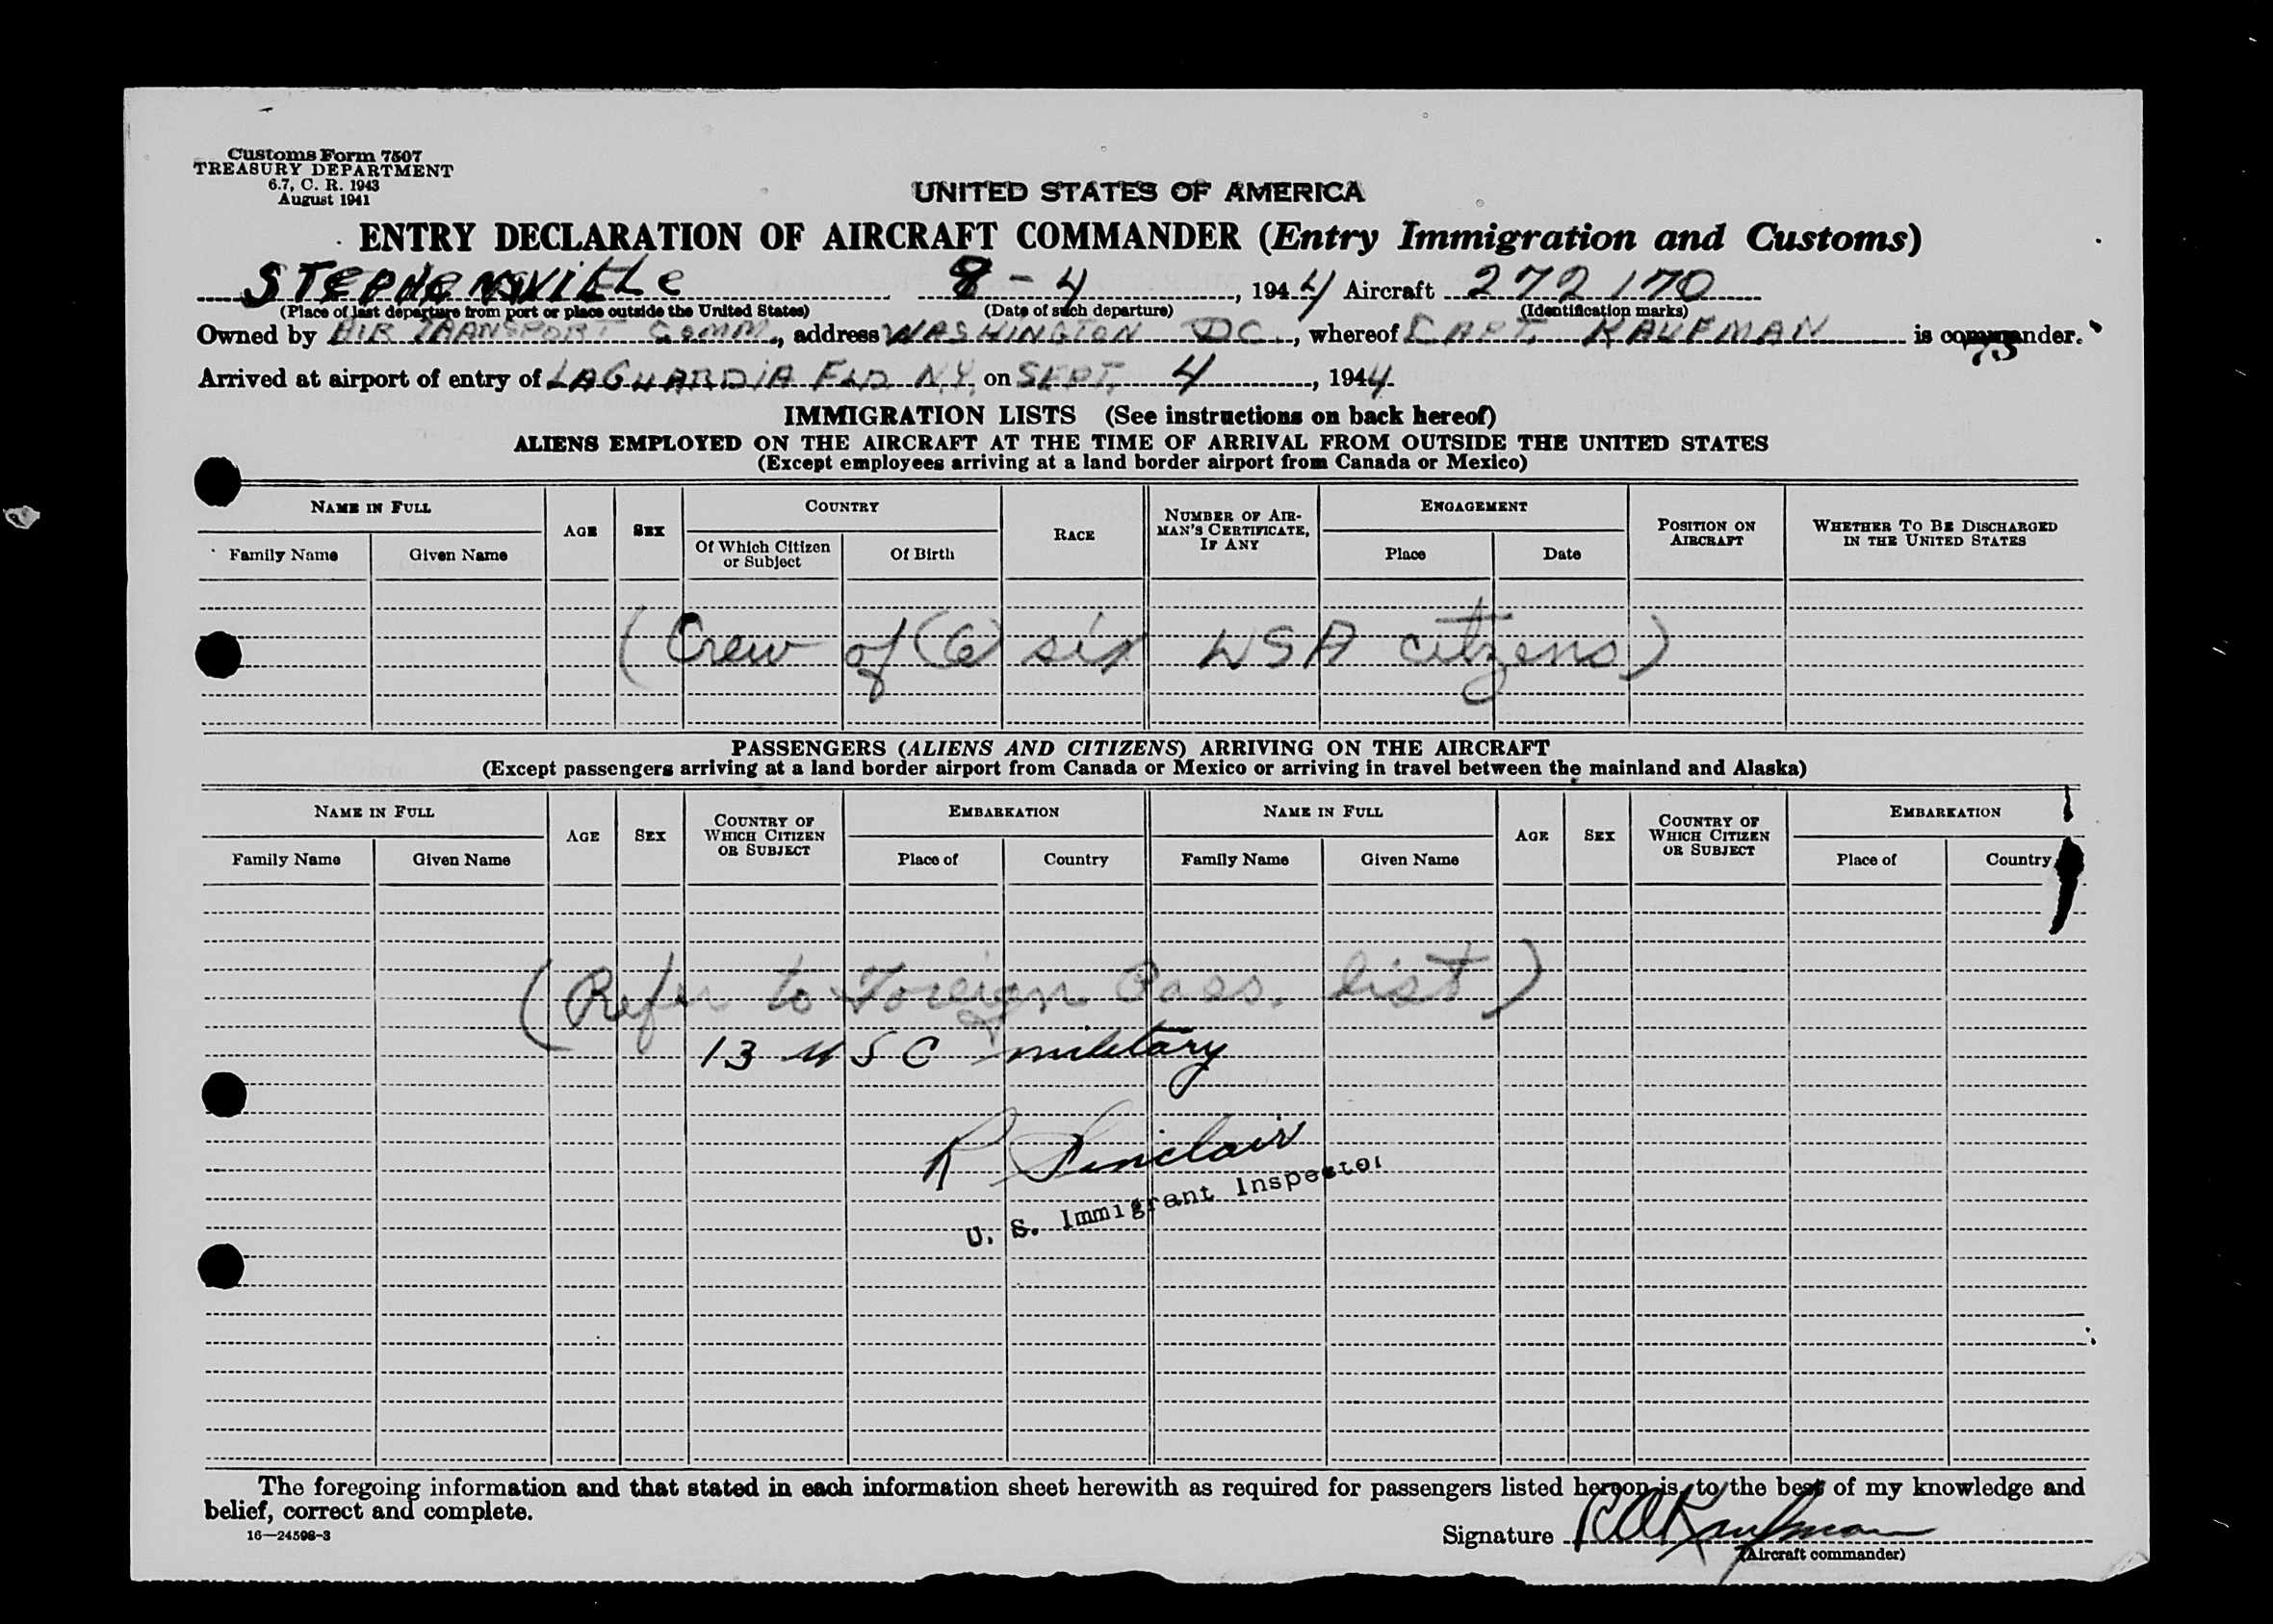 Customs Form 7507
TREASURY DEPARTMENT
6.7, C. R. 1943
August 1941
UNITED STATES OF AMERICA
ENTRY DECLARATION OF AIRCRAFT COMMANDER (Entry Immigration and Customs)
STEPHENVILLE 9-4, 1944 Aircraft 272170
(Place of last departure from port or place outside the United States) (Date of such departure) (Identification marks)
Owned by AIR TRANSPORT COMM., address WASHINGTON DC., whereof CAPT. KAUFMAN is commander.
75
Arrived at airport of entry of LAGUARDIA FLD N.Y. on SEPT. 4, 1944.
IMMIGRATION LISTS (See instructions on back hereof)
ALIENS EMPLOYED ON THE AIRCRAFT AT THE TIME OF ARRIVAL FROM OUTSIDE THE UNITED STATES
(Except employees arriving at a land border airport from Canada or Mexico)
NAME IN FULL AGE SEX COUNTRY RACE NUMBER OF AIRMAN'S CERTIFICATE, IF ANY ENGAGEMENT POSITION ON AIRCRAFT WHETHER TO BE DISCHARGED IN THE UNITED STATES
Family Name Given Name Of Which Citizen or Subject Of Birth Place Date
(Crew of (6) six USA citzens)
PASSENGERS (ALIENS AND CITIZENS) ARRIVING ON THE AIRCRAFT
(Except passengers arriving at a land border airport from Canada or Mexico or arriving in travel between the mainland and Alaska)
NAME IN FULL AGE SEX COUNTRY OF WHICH CITIZEN OR SUBJECT EMBARKATION NAME IN FULL AGE SEX COUNTRY OF WHICH CITIZEN OR SUBJECT EMBARKATION
Family Name Given Name Place of Country Family Name Given Name Place of Country
(Refer to Foreign Pass. list)
13 USC military
R Sinclair
U. S. Immigrant Inspector
The foregoing information and that stated in each information sheet herewith as required for passengers listed hereon is, to the best of my knowledge and
belief, correct and complete.
16—24598-3
Signature R O Kaufman
(Aircraft commander)